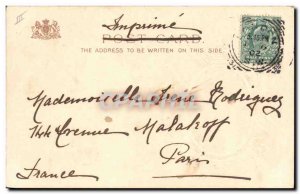 III
Imprimé
POST CARD
THE ADDRESS TO BE WRITTEN ON THIS SIDE.
Mademoiselle Irène Rodriguez
Avenue Malakoff
Paris
France